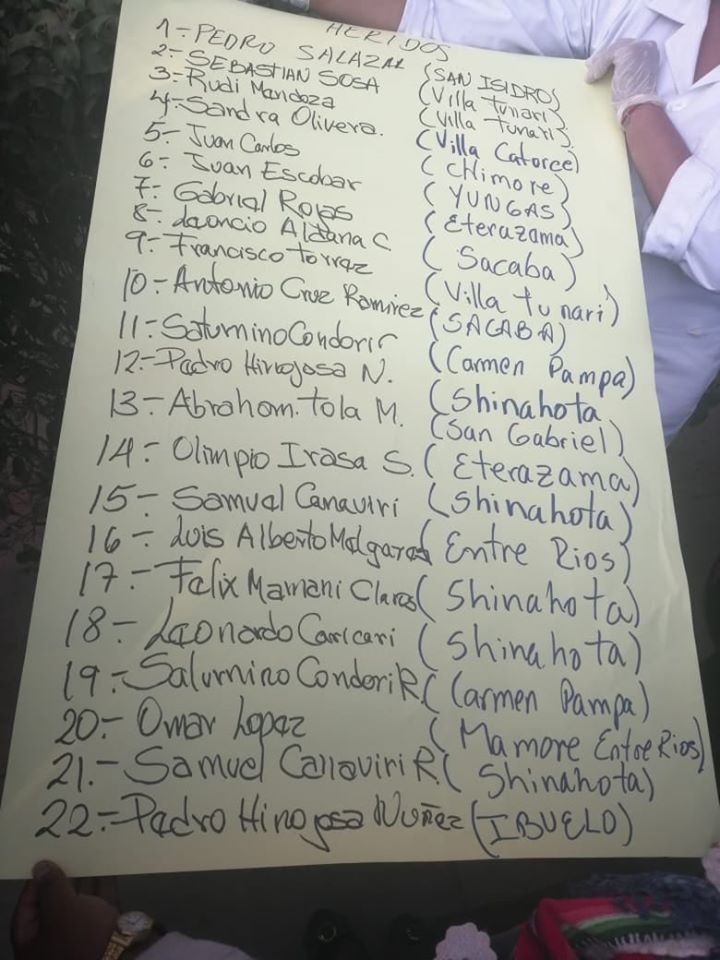 HERIDOS
1- PEDRO SALAZAR (SAN ISIDRO)
2- SEBASTIAN SOSA (Villa Tunari)
3- Rudi Mendoza (Villa Tunari)
4- Sandra Olivera. (Villa Catorce)
5- Juan Carlos (CHimore)
6- Juan Escobar (YUNGAS)
7- Gabriel Rojas (Eterazama)
8- Leoncio Aldana C (Sacaba)
9- Francisco Torrez (Villa Tunari)
10- Antonio Cruz Ramirez (SACABA)
11- Saturnino Condori r (Carmen Pampa)
12- Pedro Hinojosa N. (Shinahota
13- Abraham. Tola M. (San Gabriel)
14- Olimpio Irasa S. (Eterazama)
15- Samuel Canaviri (Shinahota)
16- Luis Alberto (Entre Rios)
17- Felix Mamani Claros (Shinahota)
18- Leonardo Caricari (Shinahota)
19- Saturnino Condori R. (Carmen Pampa)
20- Omar Lopez (Mamore Entre Rios)
21.- Samuel Canaviri R. (Shinahota)
22- Pedro Hinojosa Nuñez (IBUELO)